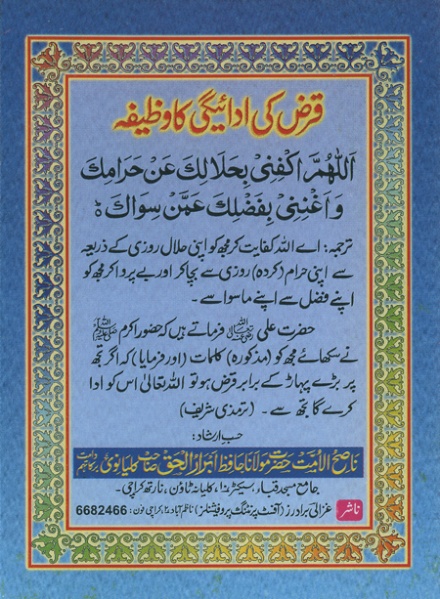 قرض کی ادائیگی کا وظیفہ
اَللّٰهُمَّ اكْفِنِيْ بِحَلَالِكَ عَنْ حَرَامِكَ
وَاَغْنِنِيْ بِفَضْلِكَ عَمَّنْ سِوَاكَ ط
ترجمہ: اے اللہ کفایت کر مجھ کو اپنی حلال روزی کے ذریعہ
سے اپنی حرام (کردہ) روزی سے بچا کر اور بے پروا کر مجھ کو
اپنے فضل سے اپنے ماسوا سے۔
حضرت علی رضی اللہ عنہ فرماتے ہیں کہ حضور اکرم ﷺ
نے سکھائے مجھ کو (مذکورہ) کلمات (اور فرمایا) کہ اگر تجھ
پر بڑے پہاڑ کے برابر قرض ہو تو اللہ تعالیٰ اس کو ادا
کرے گا تجھ سے۔ (ترمذی شریف)
حسب ارشاد:
ناصح الامت حضرت مولانا حافظ ابرار الحق صاحب کلیانوی دامت برکاتہم
جامع مسجد قباء، سیکٹر، کلیانہ ٹاؤن، نارتھ کراچی۔
ناشر غزالی برادرز (آفسٹ پرنٹنگ پروفیشنلز) ناظم آباد، کراچی فون: 6682466